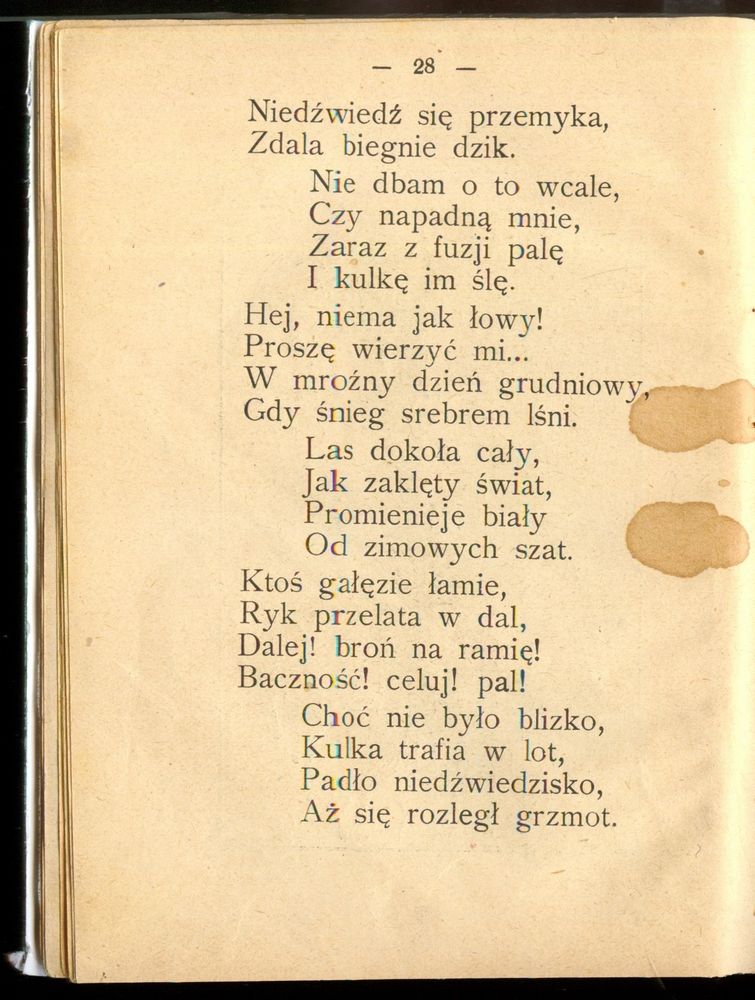 — 28 —
Niedźwiedź się przemyka,
Zdala biegnie dzik.
Nie dbam o to wcale,
Czy napadną mnie,
Zaraz z fuzji palę
I kulkę im ślę.
Hej, niema jak łowy!
Proszę wierzyć mi...
W mroźny dzień grudniowy,
Gdy śnieg srebrem lśni.
Las dokoła cały,
Jak zaklęty świat,
Promienieje biały
Od zimowych szat.
Ktoś gałęzie łamie,
Ryk przelata w dal,
Dalej! broń na ramię!
Baczność! celuj! pal!
Choć nie było blizko,
Kulka trafia w lot,
Padło niedźwiedzisko,
Aż się rozległ grzmot.